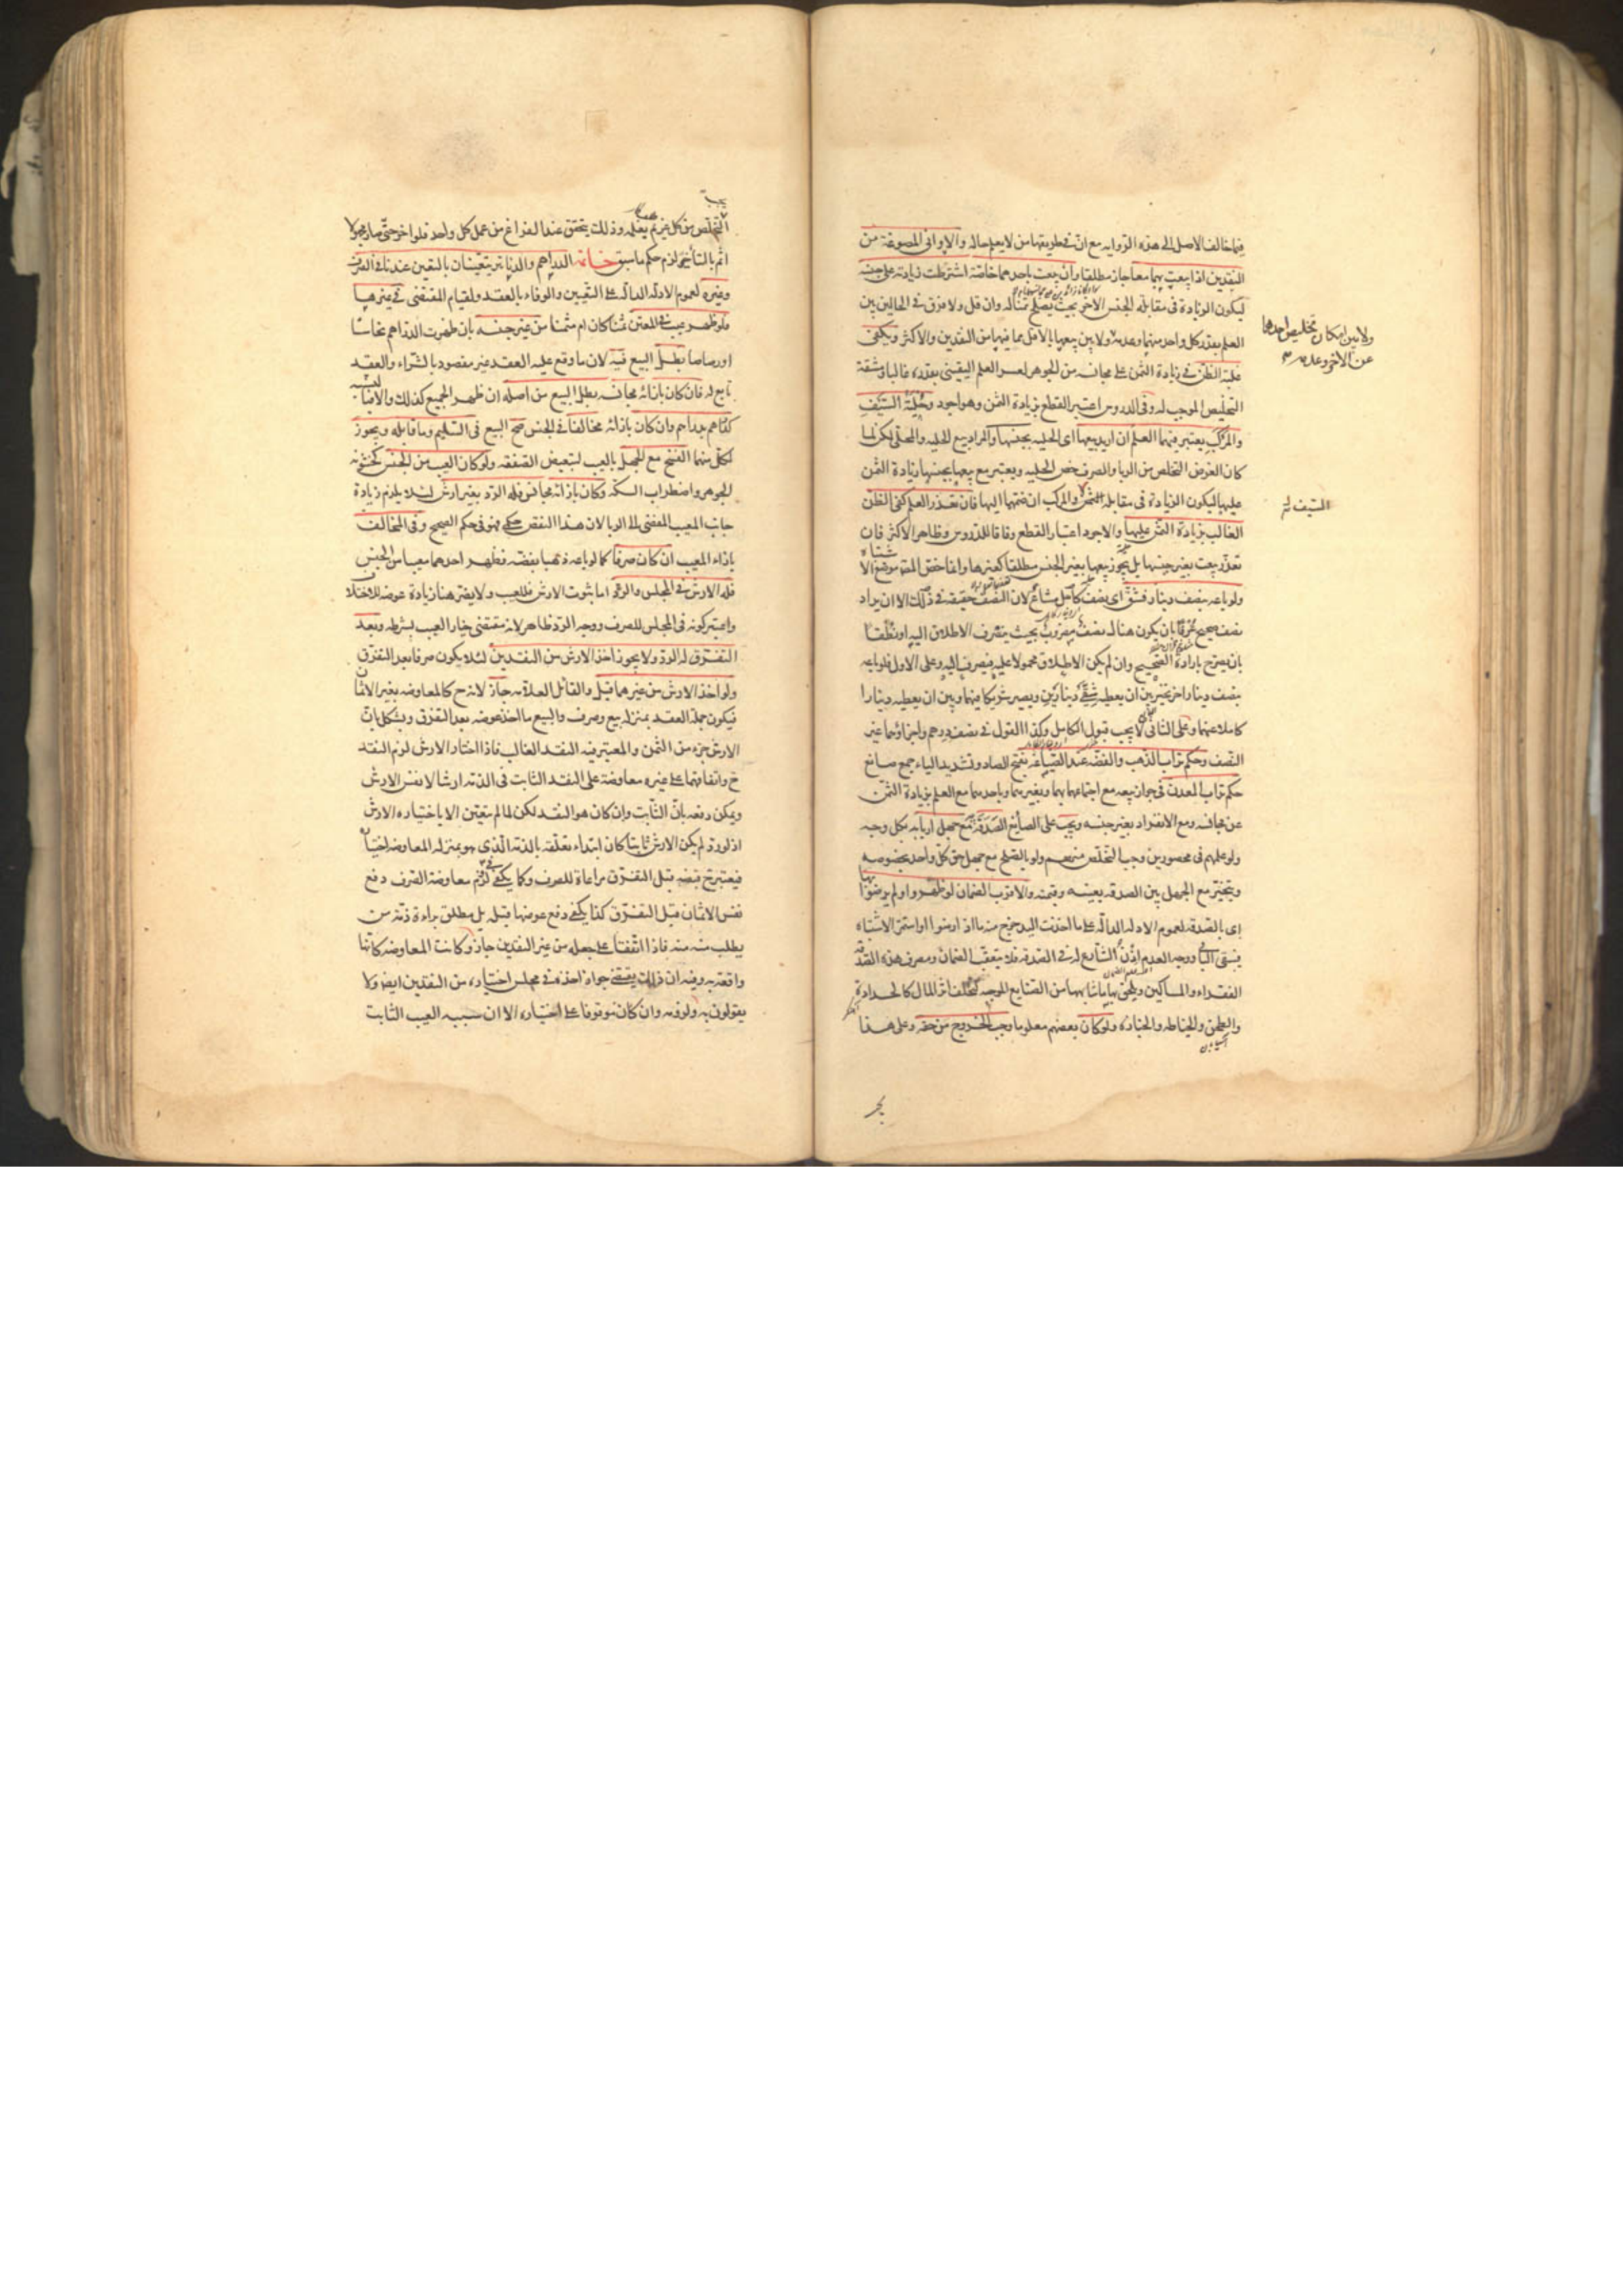 فيما خالف الاصل الى هذه الرواية مع ان في طريقها من لا يعلم حاله والاواني المصوغة من
النقدين اذا بيعت بهما معا جاز مطلقا وان بيعت باحدهما خاصة اشترطت زيادته على جنسه
ليكون الزيادة في مقابلة الجنس الاخر بحيث يصلح ثمنا له وان قل ولا فرق في الحالين بين
العلم بقدر كل واحد منهما وعدمه ولا بين بيعها بالاقل مما فيها من النقدين والاكثر ويكفي
غلبة الظن في زيادة الثمن على مجانسه من الجوهر لعسر العلم اليقيني بقدره غالبا ومشقة
التخليص الموجب له وفي الدروس اعتبر القطع بزيادة الثمن وهو اجود وحلية السيف
والمركب يعتبر فيهما العلم ان اريد بيعها اى الحلية بجنسها والمراد بيع الحلية والمحلى لكن لما
كان الغرض التخلص من الربا والصرف خص الحلية ويعتبر مع بيعها بجنسها زيادة الثمن
عليها ليكون الزيادة في مقابلة الثمن والمركب ان ضمهما اليها فان تعذر العلم كفى الظن
الغالب بزيادة الثمن عليها والاجود اعتبار القطع وفاقا للدروس وظاهر الاكثر فان
تعذر بيعت بغير جنسها بل يجوز بيعها بغير الجنس مطلقا كغيرها وانما خص المص موضع الاشتباه
ولو باعه بنصف دينار فشق اى نصف كامل مشاع لان النصف حقيقة في ذلك الا ان يراد
نصف صحيح عرفا بان يكون هناك نصف مضروب بحيث ينصرف الاطلاق اليه او نطقا
بان يصرح بارادة الصحيح وان لم يكن الاطلاق محمولا عليه فينصرف اليه وعلى الاول فلو باعه
بنصف دينار اخر تخير بين ان يعطيه شقي دينارين ويصير شريكا فيهما وبين ان يعطيه دينارا
كاملا عنهما وعلى الثاني لا يجب قبول الكامل وكذا القول في نصف درهم واجزاؤهما غير
النصف وحكم تراب الذهب والفضة عند الصياغة بفتح الصاد وتشديد الياء جمع صائغ
حكم تراب المعدن في جواز بيعه مع اجتماعهما بهما وبغيرهما وباحدهما مع العلم بزيادة الثمن
عن مجانسه ومع الانفراد بغير جنسه ويجب على الصائغ الصدقة به مع جهل اربابه بكل وجه
ولو علمهم في محصورين وجب التخلص منهم ولو بالصلح مع جهل حق كل واحد بخصوصه
ويتخير مع الجهل بين الصدقة بعينه وقيمته والاقرب الضمان لو ظهروا ولم يرضوا بها
اى بالصدقة لعموم الادلة الدالة على ما اخذت اليد خرج منه ما اذا رضوا او استمر الاشتباه
فيبقى الباقي ووجه العدم اذن الشارع له في الصدقة فلا يتعقب الضمان ومصرف هذه الصدقة
الفقراء والمساكين ويلحق بها ما شابهها من الصنايع الموجبة لتخلف اثر المال كالحدادة
والطحن والخياطة والخبازة ولو كان بعضهم معلوما وجب الخروج من حقه وعلى هذا
ولا بين امكان تخليص احدهما
عن الاخر وعدمه
السيف له
يجب
التخلص من كل غريم يعلمه وذلك يتحقق عند الفراغ من عمل كل واحد فلو اخر حتى صار مجهولا
اثم بالتأخير ولزم حكم ما سبق خاتمة الدراهم والدنانير يتعينان بالتعيين عندنا في الصرف
وغيره لعموم الادلة الدالة على التعيين والوفاء بالعقد ولقيام المقتضى في غيرها
فلو ظهر عيب في المعين ثمنا كان ام مثمنا من غير جنسه بان ظهرت الدراهم نحاسا
او رصاصا بطل البيع فيه لان ما وقع عليه العقد غير مقصود بالشراء والعقد
تابع له فان كان بازائه مجانسه بطل البيع من اصله ان ظهر الجميع كذلك والا فبالنسبة
كدراهم بدراهم وان كان بازائه مخالفا في الجنس صح البيع في السليم وما قابله ويجوز
لكل منهما الفسخ مع الجهل بالعيب لتبعيض الصفقة ولو كان العيب من الجنس كخشونة
الجوهر واضطراب السكة وكان بازائه مجانس فله الرد بغير ارش لئلا يلزم زيادة
جانب المعيب المفضي الى الربا لان هذا النقص حكمي فهو في حكم الصحيح وفي المخالف
بازاء المعيب ان كان صرفا كما لو باعه ذهبا بفضة فظهر احدهما معيبا من الجنس
فله الارش في المجلس والرد اما ثبوت الارش فللعيب ولا يضر هنا زيادة عوضه للاختلاف
واعتبر كونه في المجلس للصرف ووجه الرد ظاهر لانه مقتضى خيار العيب بشرطه وبعد
التفرق له الرد ولا يجوز اخذ الارش من النقدين لئلا يكون صرفا بعد التفرق
ولو اخذ الارش من غيرهما قيل والقائل العلامة جاز لانه ح كالمعاوضة بغير الاثمان
فيكون جملة العقد بمنزلة بيع وصرف والبيع ما اخذ عوضه بعد التفرق ويشكل بان
الارش جزء من الثمن والمعتبر فيه النقد الغالب فاذا اختار الارش لزم النقد
ح واتفاقهما على غيره معاوضة على النقد الثابت في الذمة ارشا لا نفس الارش
ويمكن دفعه بان الثابت وان كان هو النقد لكن لما لم يتعين الا باختياره الارش
اذ لو رد لم يكن الارش ثابتا كان ابتداء تعلقه بالذمة الذي هو بمنزلة المعاوضة اختياره
فيعتبر ح قبضه قبل التفرق مراعاة للصرف وكما يكفي في لزوم معاوضة الصرف دفع
نفس الاثمان قبل التفرق كذا يكفي دفع عوضها قبله بل مطلق براءة ذمة من
يطلب منه منه فاذا اتفقا على جعله من غير النقدين جاز وكانت المعاوضة كانها
واقعة به وفيه ان ذلك يقتضي جواز اخذه في مجلس اختياره من النقدين ايضا ولا
يقولون به ولزومه وان كان موقوفا على اختياره الا ان سببه العيب الثابت